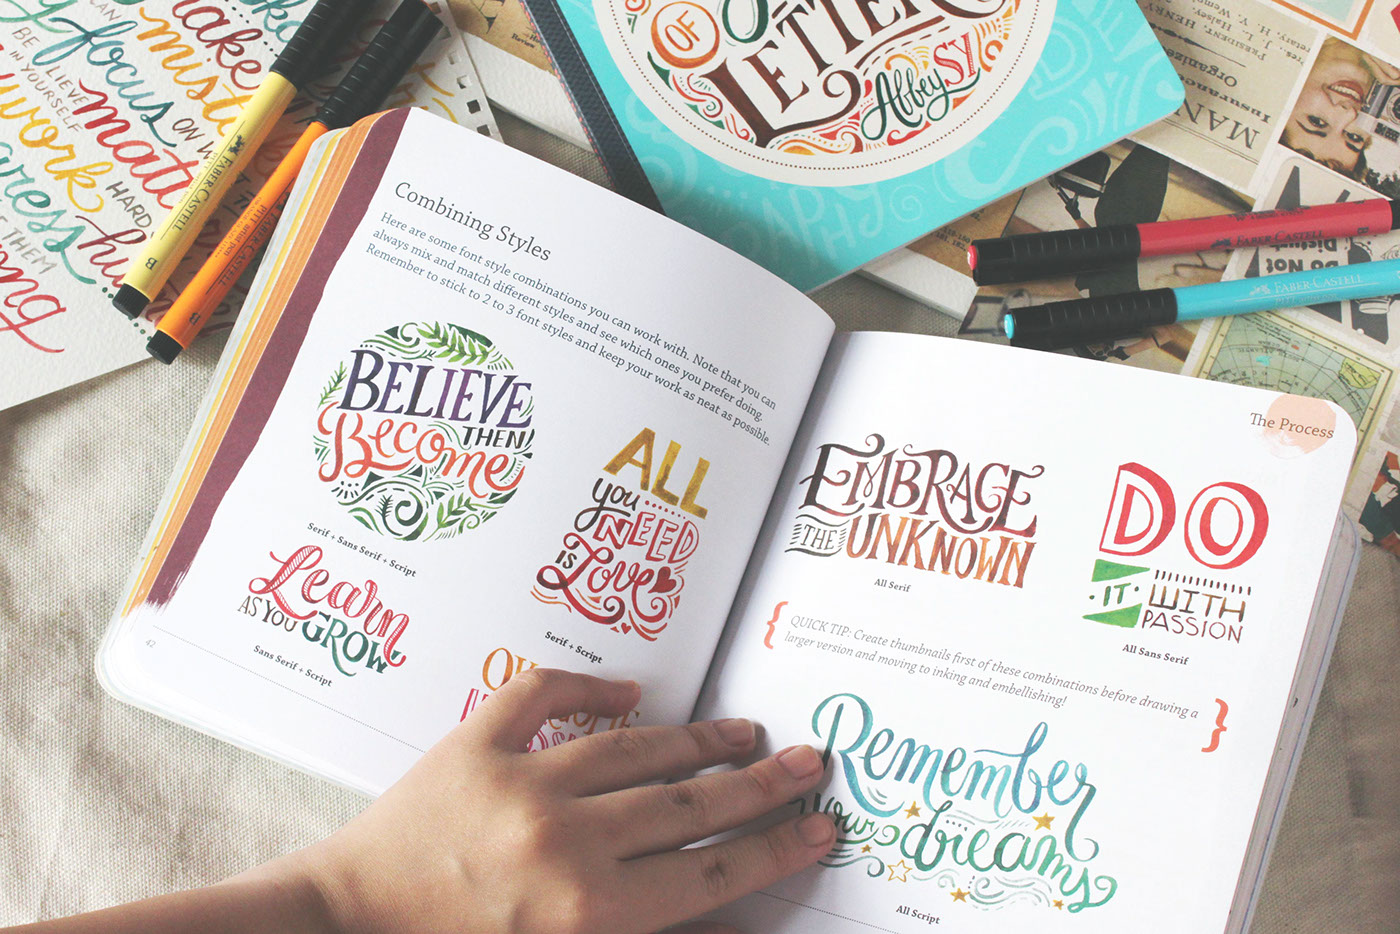 CAN
make
focus
BE
IN YOURSELF
BELIEVE
ON
work
HARD
THEM
FABER-CASTELL
PITT artist pen
B
OF
LETTER
Abbey SY
PRESIDENT, HENRY
MAN
FABER-CASTELL
FABER-CASTELL
Do Not
Combining Styles
Here are some font style combinations you can work with. Note that you can
always mix and match different styles and see which ones you prefer doing.
Remember to stick to 2 to 3 font styles and keep your work as neat as possible.
BELIEVE
THEN
Become
Serif + Sans Serif + Script
ALL
you
NEED
IS
Love
Serif + Script
Learn
AS YOU GROW
Sans Serif + Script
42
The Process
EMBRACE
THE UNKNOWN
All Serif
DO
IT WITH
PASSION
All Sans Serif
QUICK TIP: Create thumbnails first of these combinations before drawing a
larger version and moving to inking and embellishing!
Remember
your dreams
All Script